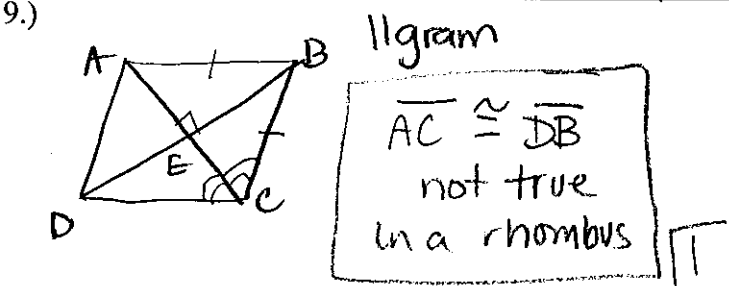 9.)
A
B
E
D
C
||gram
AC ≅ DB
not true
in a rhombus